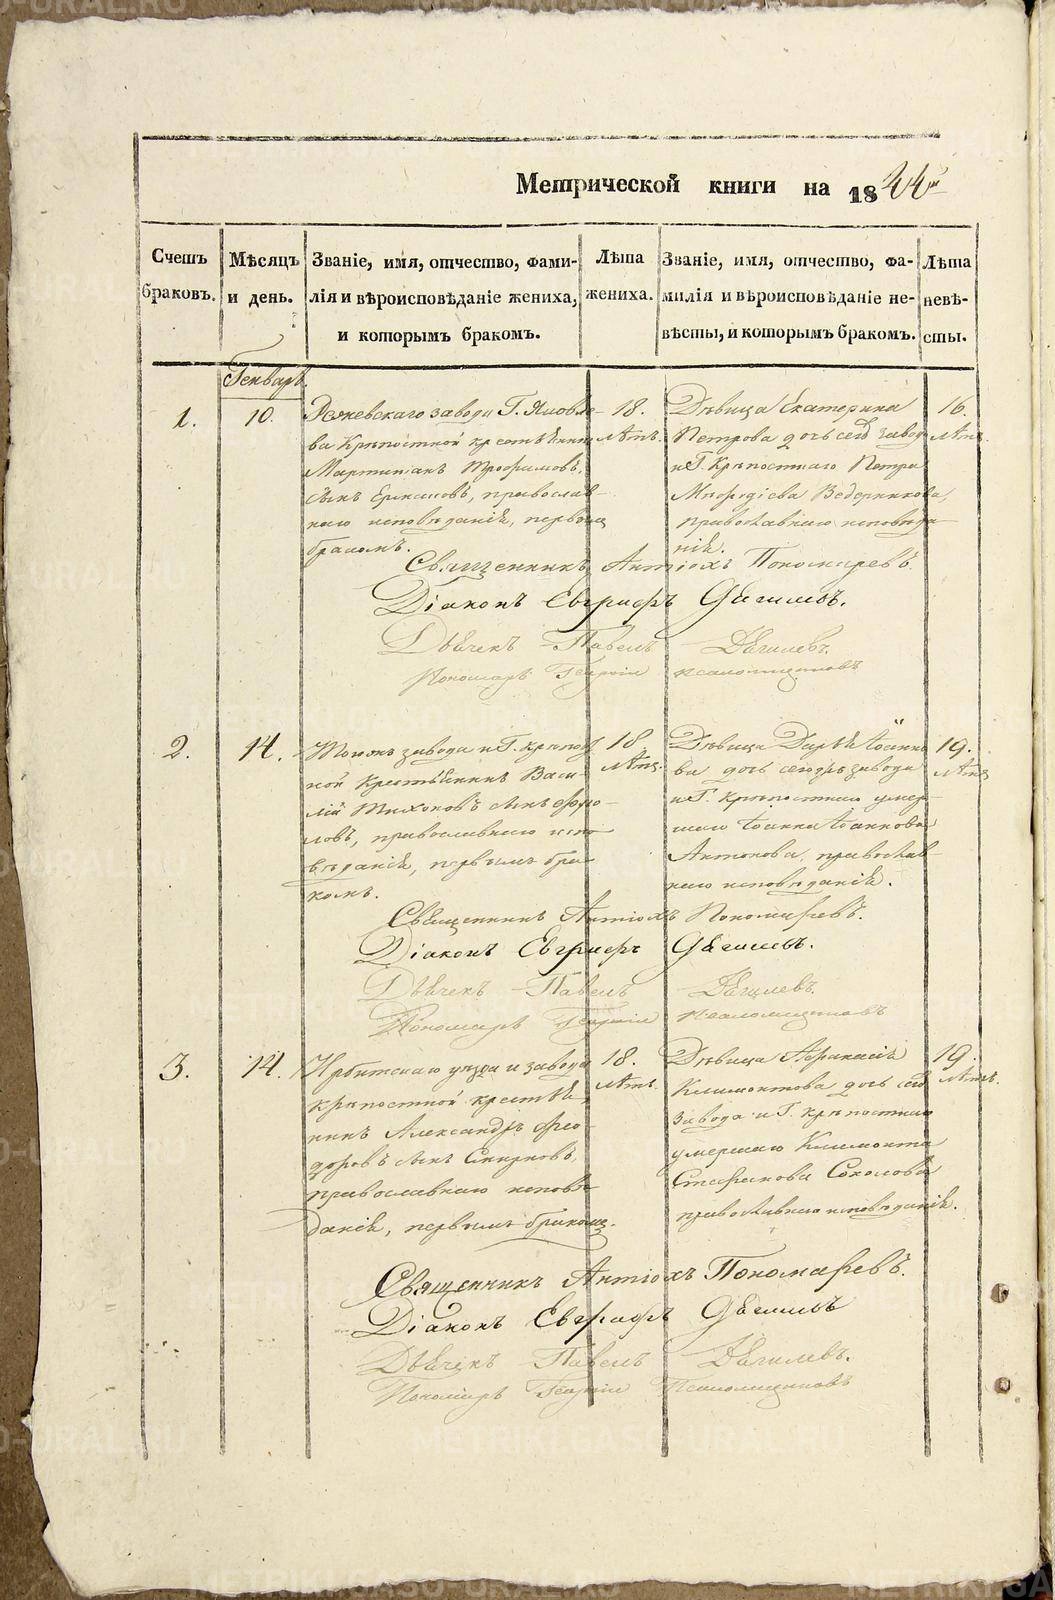 Метрической книги на 1844й
Счетъ браковъ.
Мѣсяцъ и день.
Званіе, имя, отчество, фами-
лія и вѣроисповѣданіе жениха,
и которымъ бракомъ.
Лѣта
жениха.
Званіе, имя, отчество, фа-
милія и вѣроисповѣданіе не-
вѣсты, и которымъ бракомъ.
Лѣта
невѣ-
сты.
Генварь
1.
10.
Режевскаго завода Г. Яковле-
ва крѣпостной крестьянинъ
Мартиніанъ Трофимовъ
сынъ православ-
наго исповѣданія, первымъ
бракомъ.
18.
лѣтъ.
Дѣвица Екатерина
Петрова дочь сего завода
и Г. крѣпостнаго Петра
Ведерникова,
православнаго исповѣда-
нія.
16.
лѣтъ.
Священникъ Антіохъ Пономаревъ.
Діаконъ Евграфъ Дягилевъ.
Дьячекъ Павелъ Дягилевъ.
Пономарь Георгій Псаломщиковъ
2.
14.
Тогожъ завода и Г. крѣпост-
ной крестьянинъ Васи-
лій Тихоновъ сынъ Фро-
ловъ, православнаго испо-
вѣданія, первымъ бра-
комъ.
18
лѣтъ.
Дѣвица Дарья Іоанно-
ва дочь сегожъ завода
и Г. крѣпостнаго умер-
шаго Іоанна Іоаннова
Антонова, православ-
наго исповѣданія.
19.
лѣтъ
Священникъ Антіохъ Пономаревъ.
Діаконъ Евграфъ Дягилевъ.
Дьячекъ Павелъ Дягилевъ.
Пономарь Георгій Псаломщиковъ
3.
14.
Ирбитскаго уѣзда и завода
крѣпостной крестья-
нинъ Александръ Фео-
доровъ сынъ Смирновъ,
православнаго исповѣ-
данія, первымъ бракомъ.
18.
лѣтъ.
Дѣвица Афанасія
Климонтова дочь сего
завода и Г. крѣпостнаго
умершаго Климонта
Стефанова Соколова
православнаго исповѣданія.
19.
лѣтъ.
Священникъ Антіохъ Пономаревъ.
Діаконъ Евграфъ Дягилевъ
Дьячекъ Павелъ Дягилевъ.
Пономарь Георгій Псаломщиковъ
METRIKI.GASO-URAL.RU